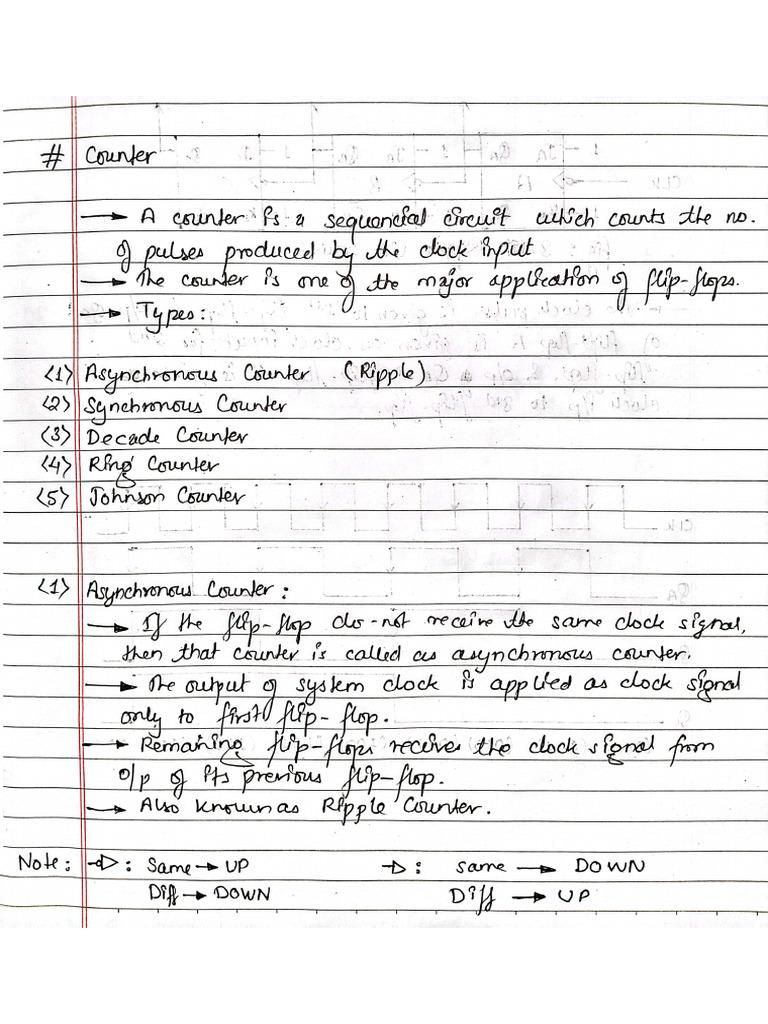 # Counter
→ A counter is a sequencial circuit which counts the no.
of pulses produced by the clock input
→ The counter is one of the major application of flip-flops.
→ Types:
<1> Asynchronous Counter (Ripple)
<2> Synchronous Counter
<3> Decade Counter
<4> Ring Counter
<5> Johnson Counter
<1> Asynchronous Counter:
→ If the flip-flop do-not receive the same clock signal,
then that counter is called as asynchronous counter.
→ The output of system clock is applied as clock signal
only to first flip-flop.
→ Remaining flip-flops receives the clock signal from
o/p of its previous flip-flop.
→ Also known as Ripple Counter.
Note: : Same → UP : same → DOWN
Diff → DOWN Diff → UP